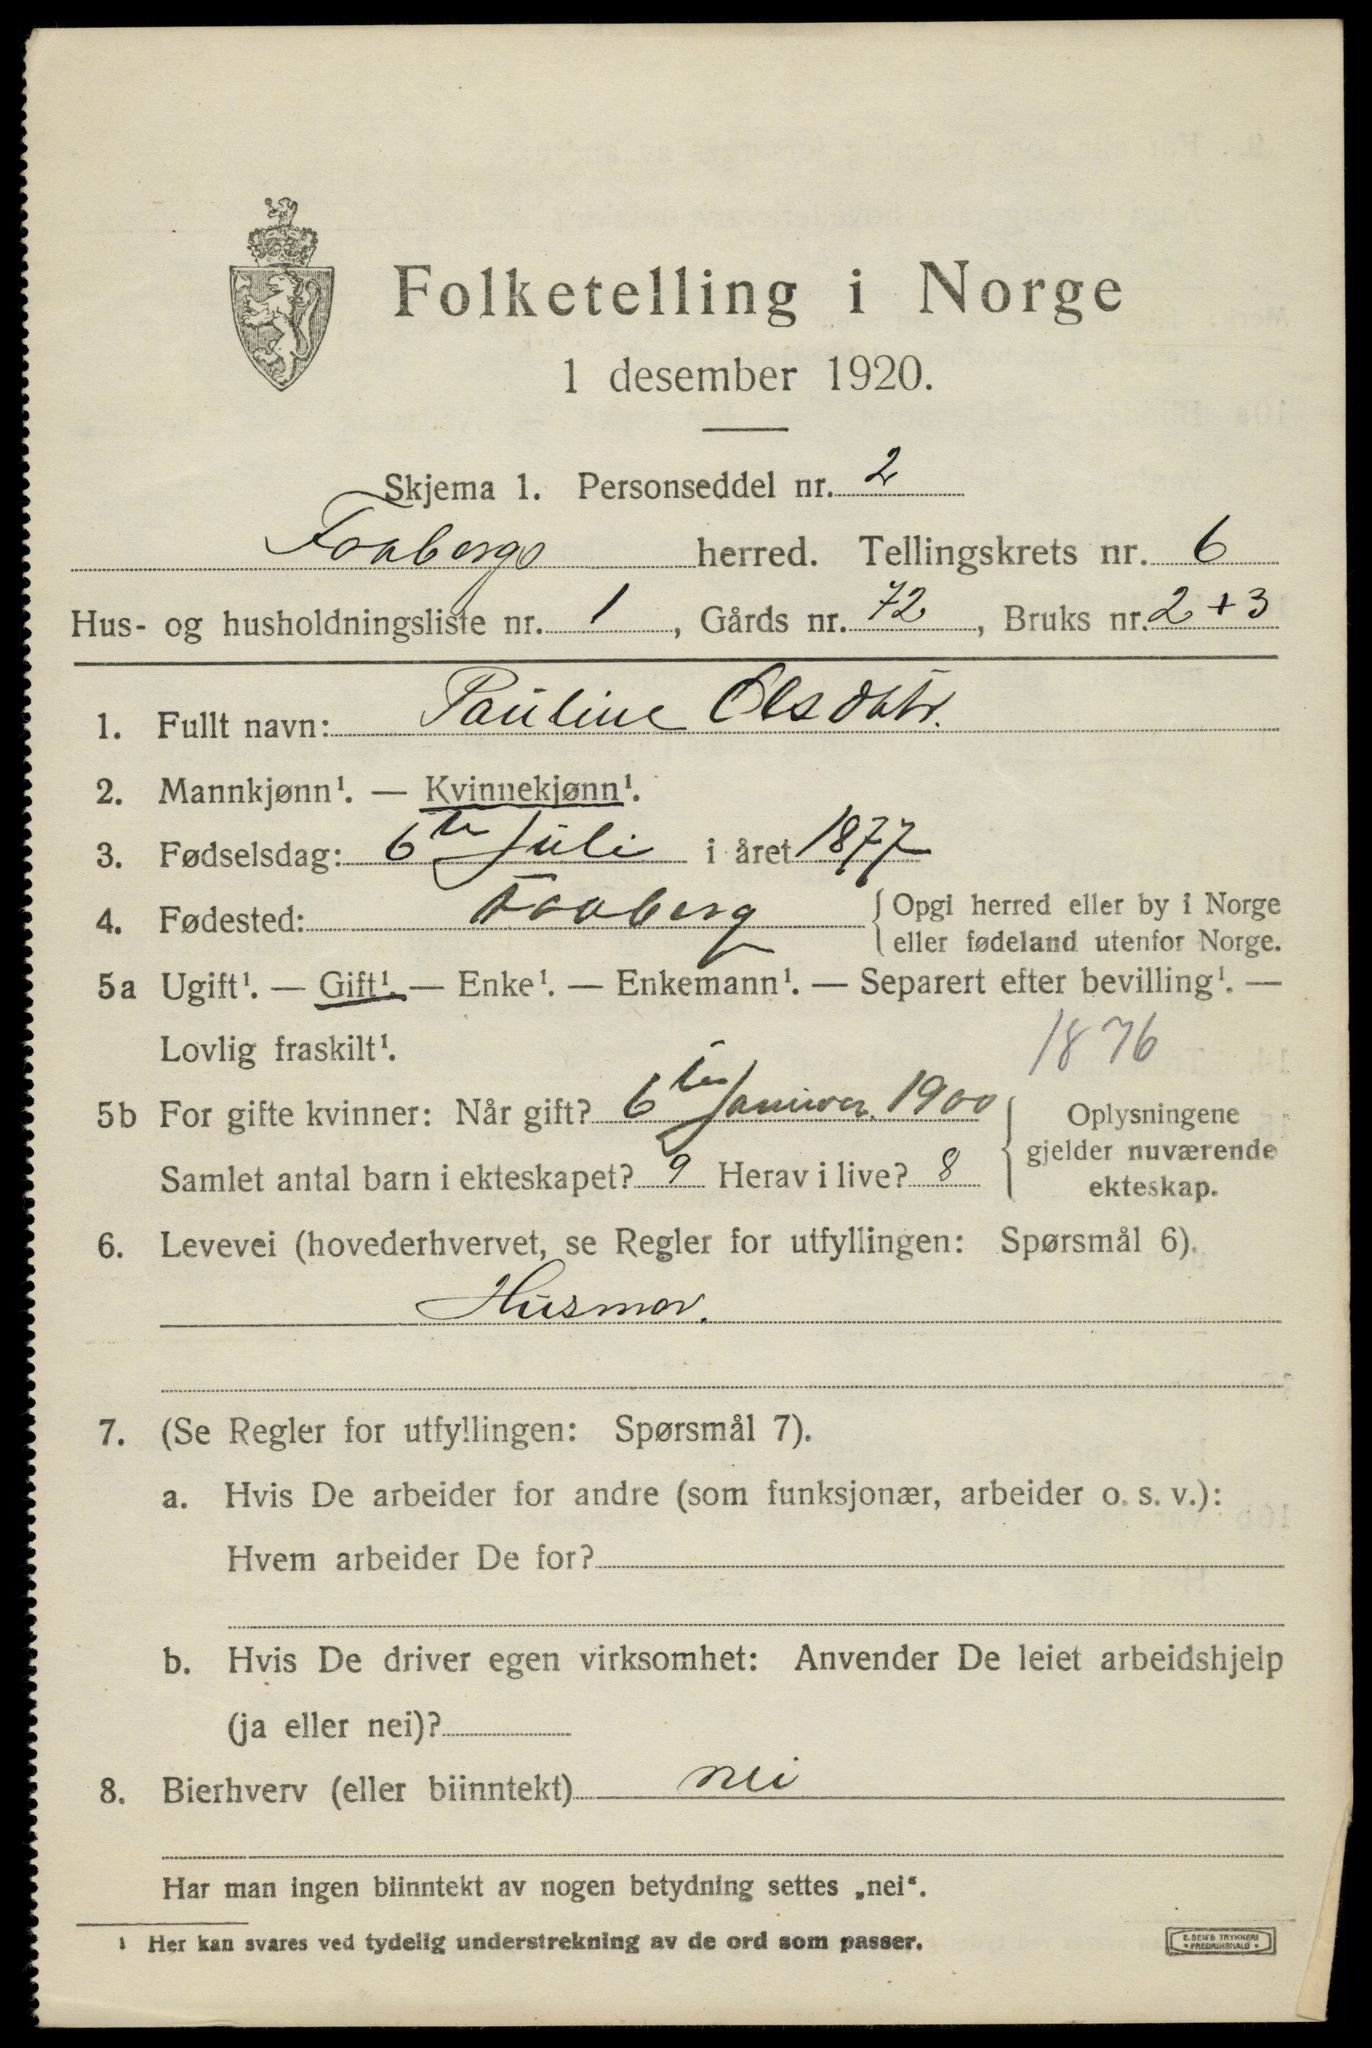 Folketelling i Norge
1 desember 1920.
Skjema 1. Personseddel nr. 2
Faabergs herred. Tellingskrets nr. 6
Hus- og husholdningsliste nr. 1, Gårds nr. 72, Bruks nr. 2 + 3
1. Fullt navn: Pauline Olsdatr.
2. Mannkjønn¹. — Kvinnekjønn¹.
3. Fødselsdag: 6te Juli i året 1877
4. Fødested: Faaberg { Opgi herred eller by i Norge
eller fødeland utenfor Norge.
5a Ugift¹. — Gift¹. — Enke¹. — Enkemann¹. — Separert efter bevilling¹. —
Lovlig fraskilt¹. 1876
5b For gifte kvinner: Når gift? 6te Januar. 1900
Samlet antal barn i ekteskapet? 9 Herav i live? 8
{ Oplysningene
gjelder nuværende
ekteskap.
6. Levevei (hovederhvervet, se Regler for utfyllingen: Spørsmål 6).
Husmor.
7. (Se Regler for utfyllingen: Spørsmål 7).
a. Hvis De arbeider for andre (som funksjonær, arbeider o. s. v.):
Hvem arbeider De for?
b. Hvis De driver egen virksomhet: Anvender De leiet arbeidshjelp
(ja eller nei)?
8. Bierhverv (eller biinntekt) nei
Har man ingen biinntekt av nogen betydning settes „nei“.
¹ Her kan svares ved tydelig understrekning av de ord som passer.
E. SEM'S TRYKKERI
• FREDRIKSHALD •